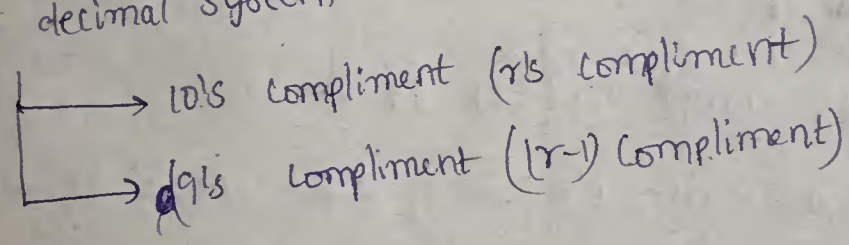 decimal system
10's compliment (r's compliment)
9's compliment ((r-1) compliment)